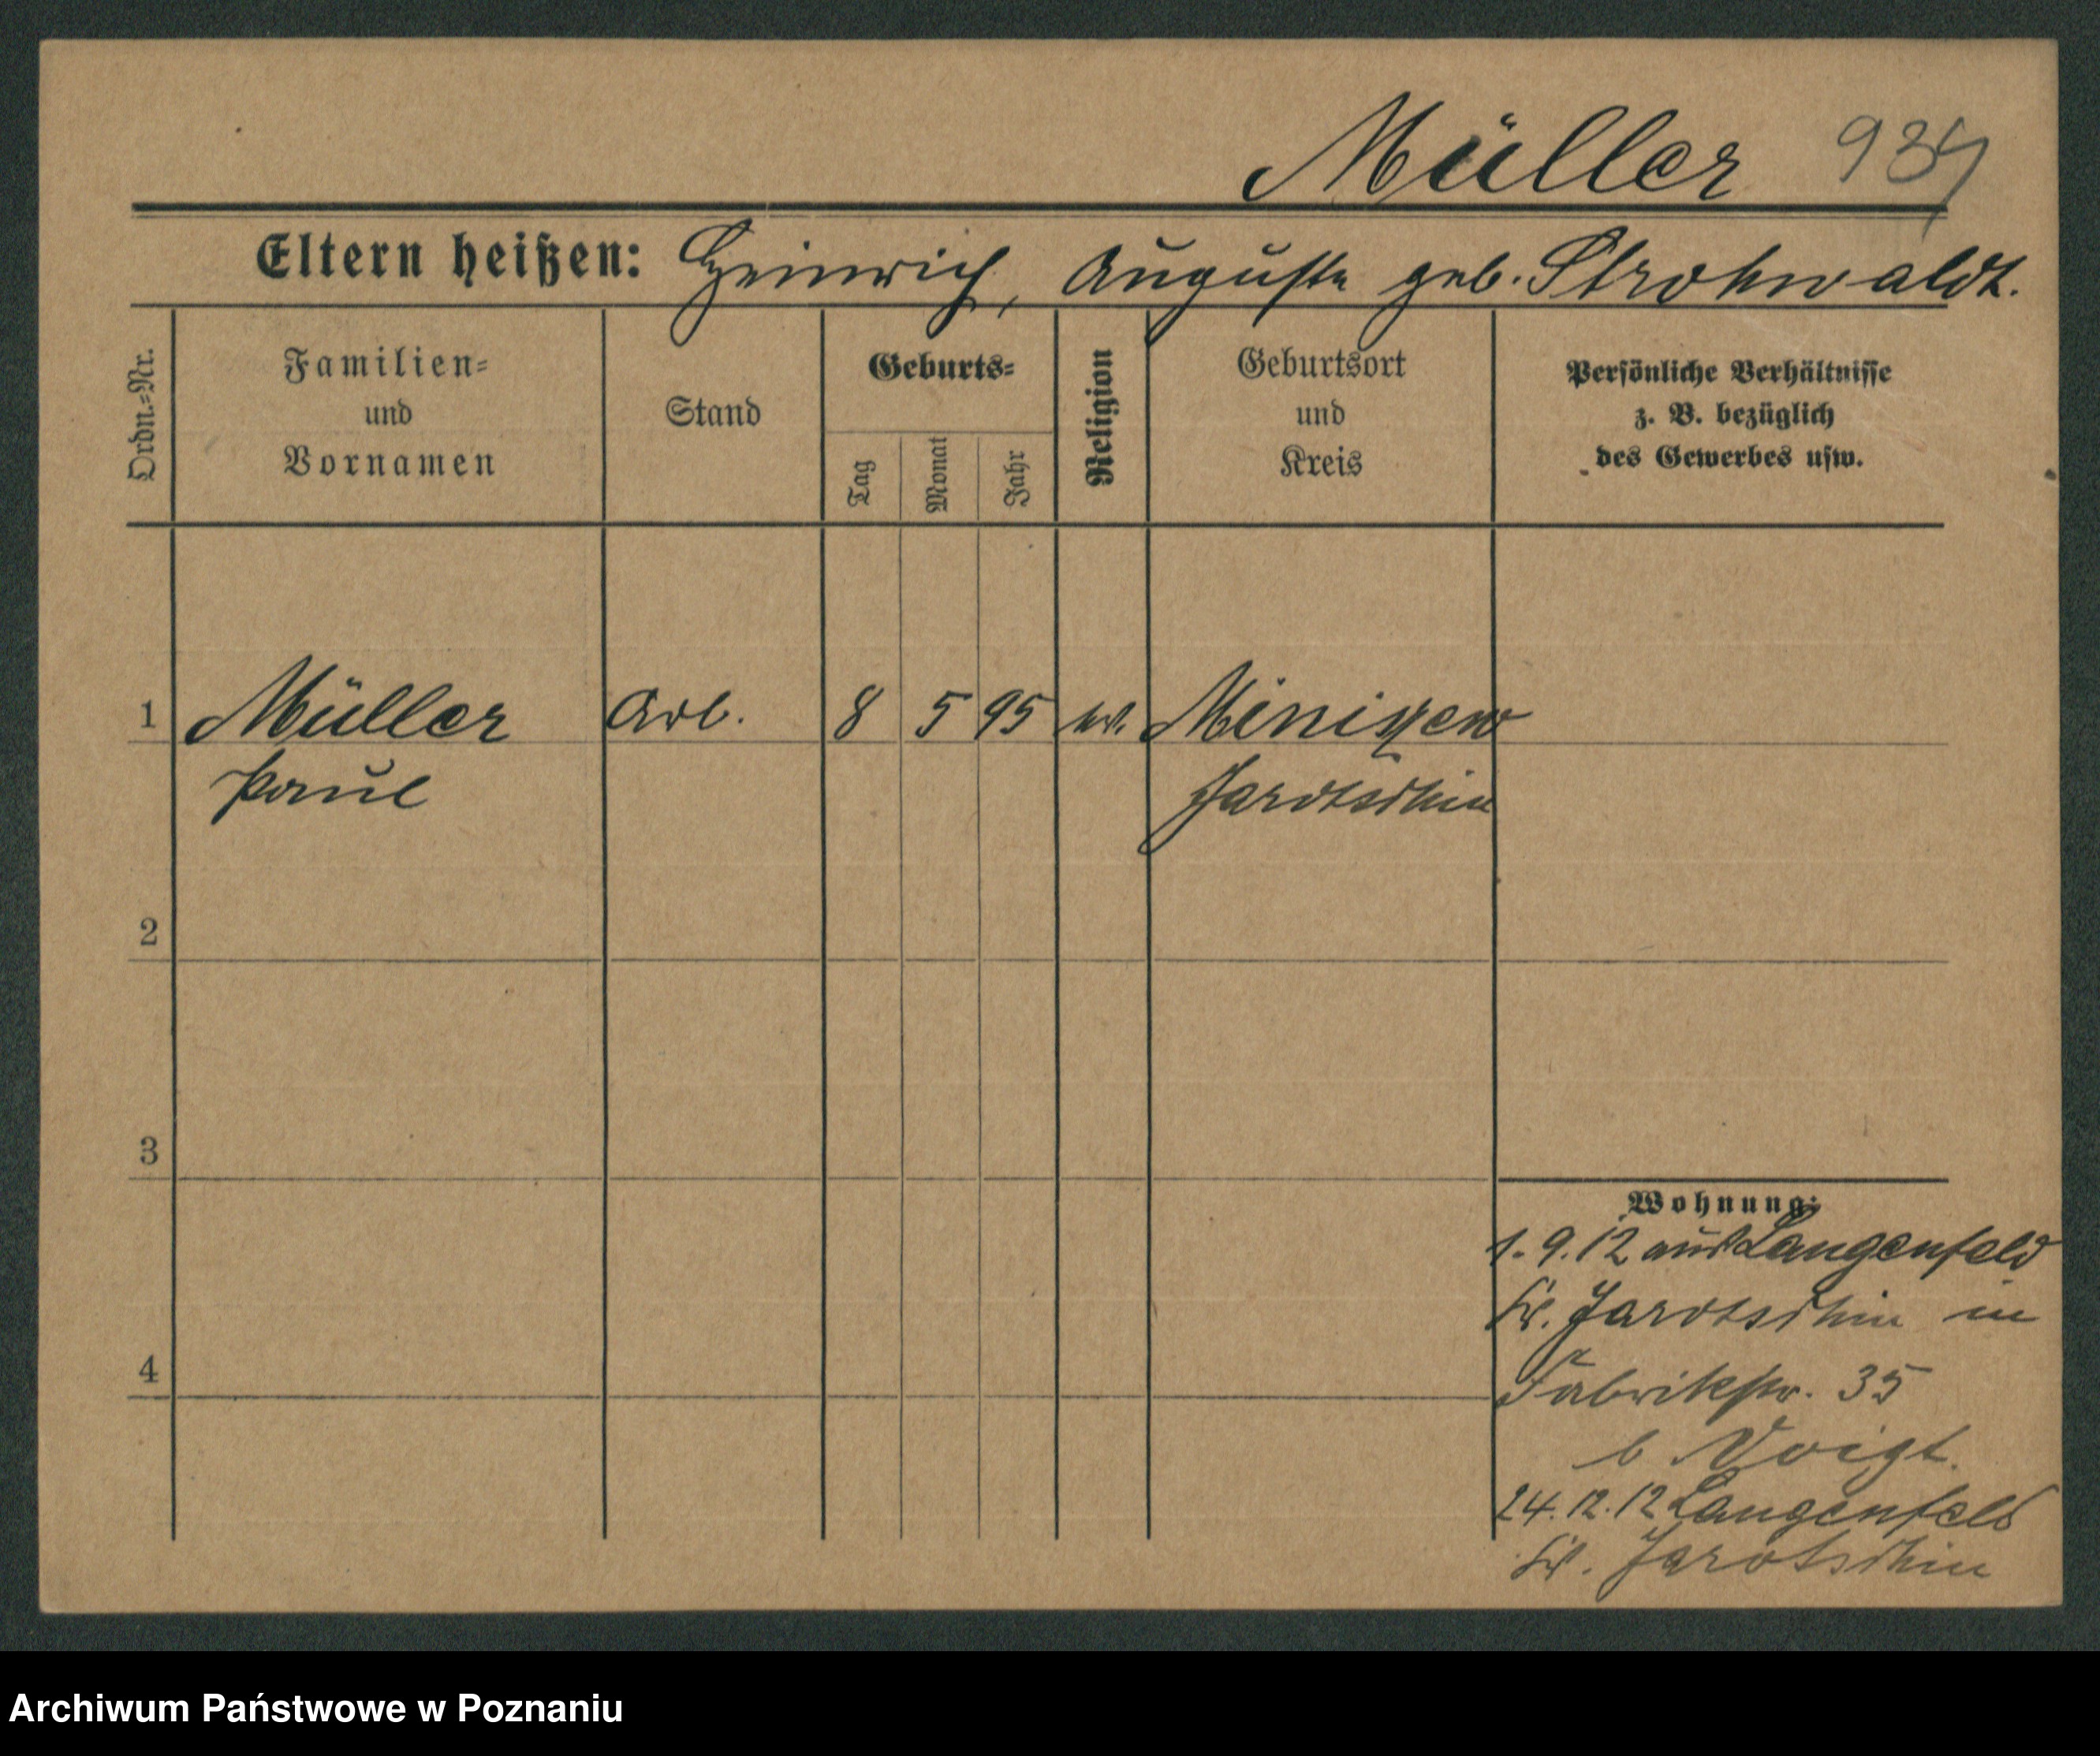 Müller 934
Eltern heißen: Heinrich, Auguste geb. Strohwaldt.
Ordn.-Nr.
Familien-
und
Vornamen
Stand
Geburts-
Tag
Monat
Jahr
Religion
Geburtsort
und
Kreis
Persönliche Verhältnisse
z. B. bezüglich
des Gewerbes usw.
1 Müller Arb. 8 5 95
Paul Jarotschin
2
3
4
Wohnung:
1.9.12 aus Langenfeld
Kr. Jarotschin in
Fabrikstr. 35
b Voigt.
24.12.12 Langenfeld
Kr. Jarotschin
Archiwum Państwowe w Poznaniu